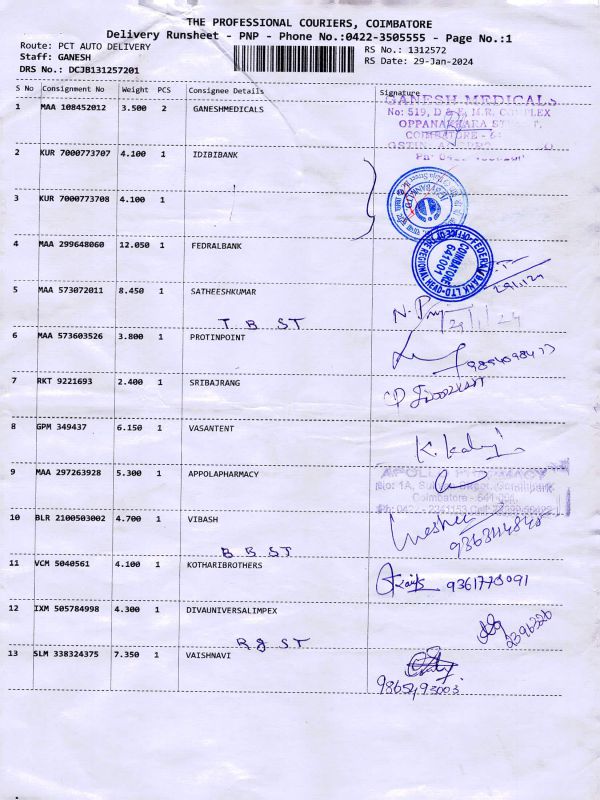 THE PROFESSIONAL COURIERS, COIMBATORE
Delivery Runsheet - PNP - Phone No.:0422-3505555 - Page No.:1
Route: PCT AUTO DELIVERY
Staff: GANESH
DRS No.: DCJB131257201
RS No.: 1312572
RS Date: 29-Jan-2024
S No Consignment No Weight PCS Consignee Details Signature
1 MAA 108452012 3.500 2 GANESHMEDICALS
GANESH MEDICALS
No: 519, D & E, N.R. COMPLEX
OPPANAKHARA STREET,
COIMBATORE - 64
2 KUR 7000773707 4.100 1 IDIBIBANK
3 KUR 7000773708 4.100 1
4 MAA 299648060 12.050 1 FEDRALBANK
COIMBATORE
641001
5 MAA 573072011 8.450 1 SATHEESHKUMAR
T B ST
6 MAA 573603526 3.800 1 PROTINPOINT
7 RKT 9221693 2.400 1 SRIBAJRANG
8 GPM 349437 6.150 1 VASANTENT
9 MAA 297263928 5.300 1 APPOLAPHARMACY
APOLLO PHARMACY
Coimbatore - 641 001
10 BLR 2100503002 4.700 1 VIBASH
B B ST
9363114848
11 VCM 5040561 4.100 1 KOTHARIBROTHERS
9361778091
12 IXM 505784998 4.300 1 DIVAUNIVERSALIMPEX
R g ST
2396326
13 SLM 338324375 7.350 1 VAISHNAVI
9865493003